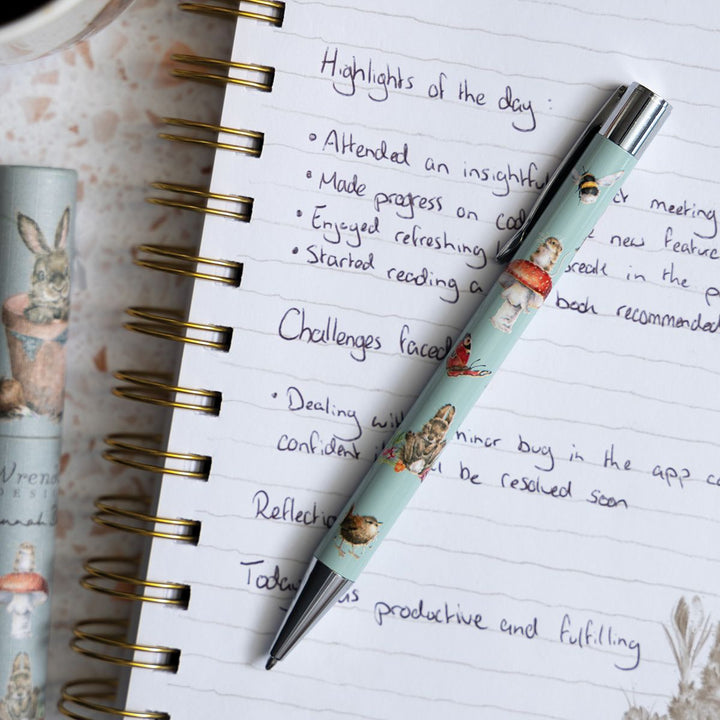 Highlights of the day :
• Attended an insightfu meeting
• Made progress on cod new featur
• Enjoyed refreshing break in the p
• Started reading a book recommended
Challenges faced
• Dealing wi minor bug in the app c
confident be resolved soon
Reflecti
Today as productive and fulfilling
Wren
DESI